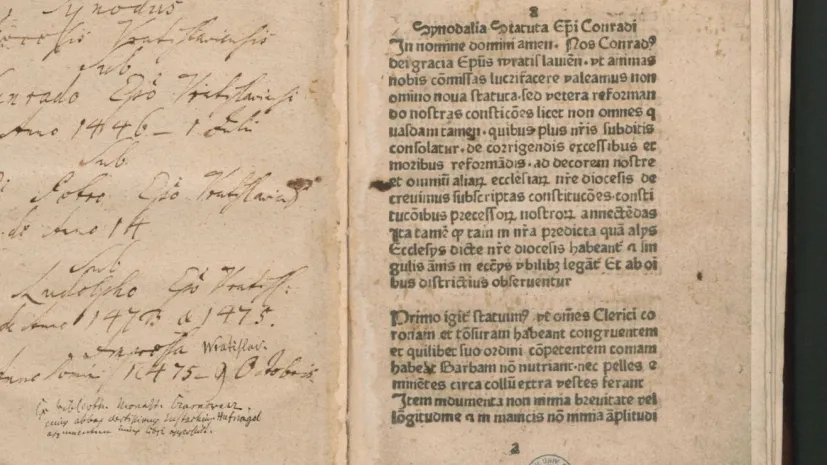 Synodus
Vratislaviensis
Sub
Conrado Epō Vratislaviensi
Anno 1446 – 1 Julii
Sub
Petro Epō Vratislaviens
de Anno 14
Sub
Rudolpho Epō Vratisl:
de Anno 1473 & 1475.
Wratislav.
Anno Domini 1475 – 9 Octobris
8
Synodalia Statuta Ep̄i Conradi
In nomine domini amen. Nos Conradꝰ
dei gracia Ep̄us wratislauiēn. vt animas
nobis cōmissas lucrifacere valeamus non
omnino noua statuta. sed vetera reforman
do nostras consticōes licet non omnes q
uasdam tamen. quibus plus nr̄is subditis
consolatur. de corrigendis excessibus et
moribus reformādis. ad decorem nostre
et omniū aliaꝝ ecclesiaꝝ nr̄e diocesis de
creuimus subscriptas constitucōes. consti
tucōnibus p̄cessoꝝ nostroꝝ annectēdas
Ita tamē ꝙ tam in nr̄a predicta quā alijs
Ecclesijs dicte nr̄e diocesis habeant̄ ⁊ sin
gulis ānis in ecc̄ijs vbilibꝫ legāt̄ Et ab oī
bus districtius obseruentur
Primo igit̄ statuimꝰ vt om̄es Clerici co
ronam et tōsuram habeant congruentem
et quilibet suo ordini cōpetentem comam
habeāt Barbam nō nutriant. nec pelles e
minētes circa collū extra vestes ferant
Item indumenta non nimia breuitate vel
lōgitudine ⁊ in manicis nō nimia āplitudi
a